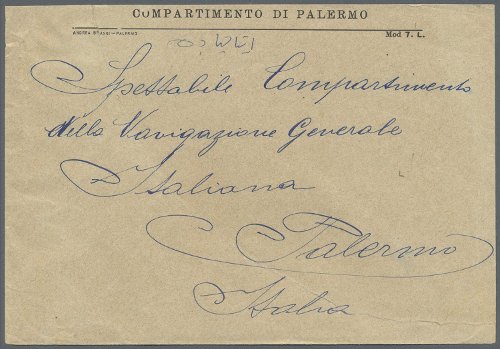 COMPARTIMENTO DI PALERMO
Mod 7. L.
Spettabile Compartimento
della Navigazione Generale
Italiana
Palermo
Italia